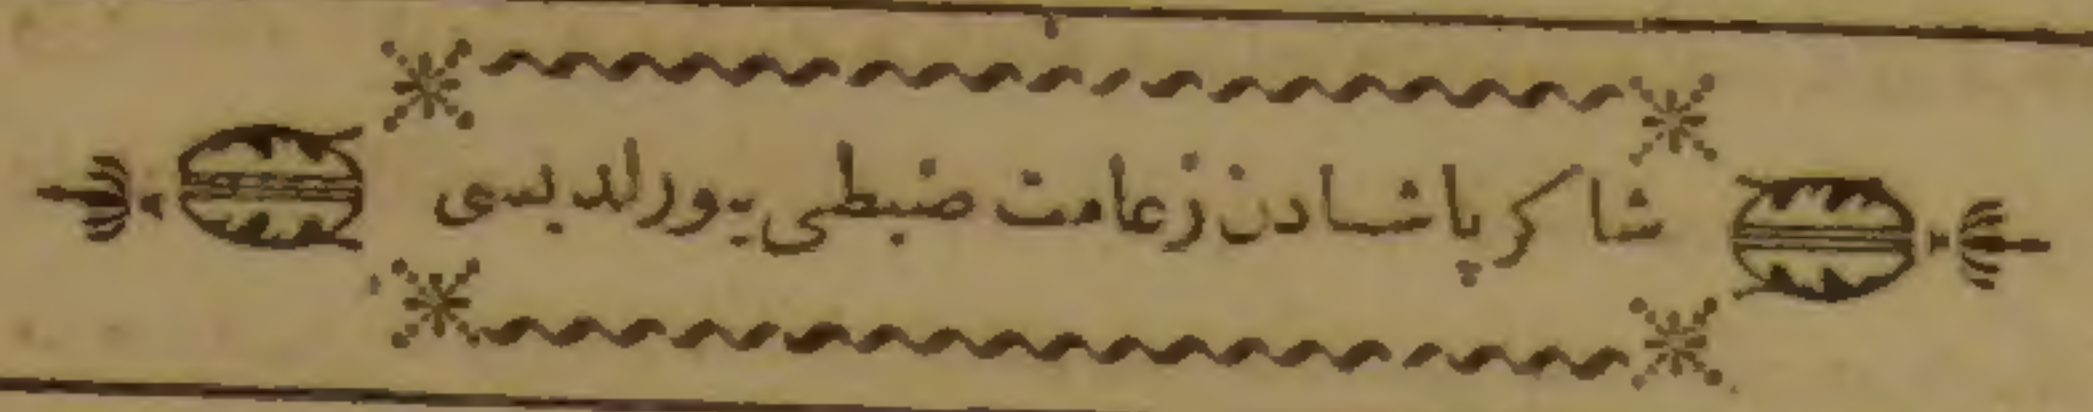 شاکر پاشادن زعامت ضبطی یورلدیسی